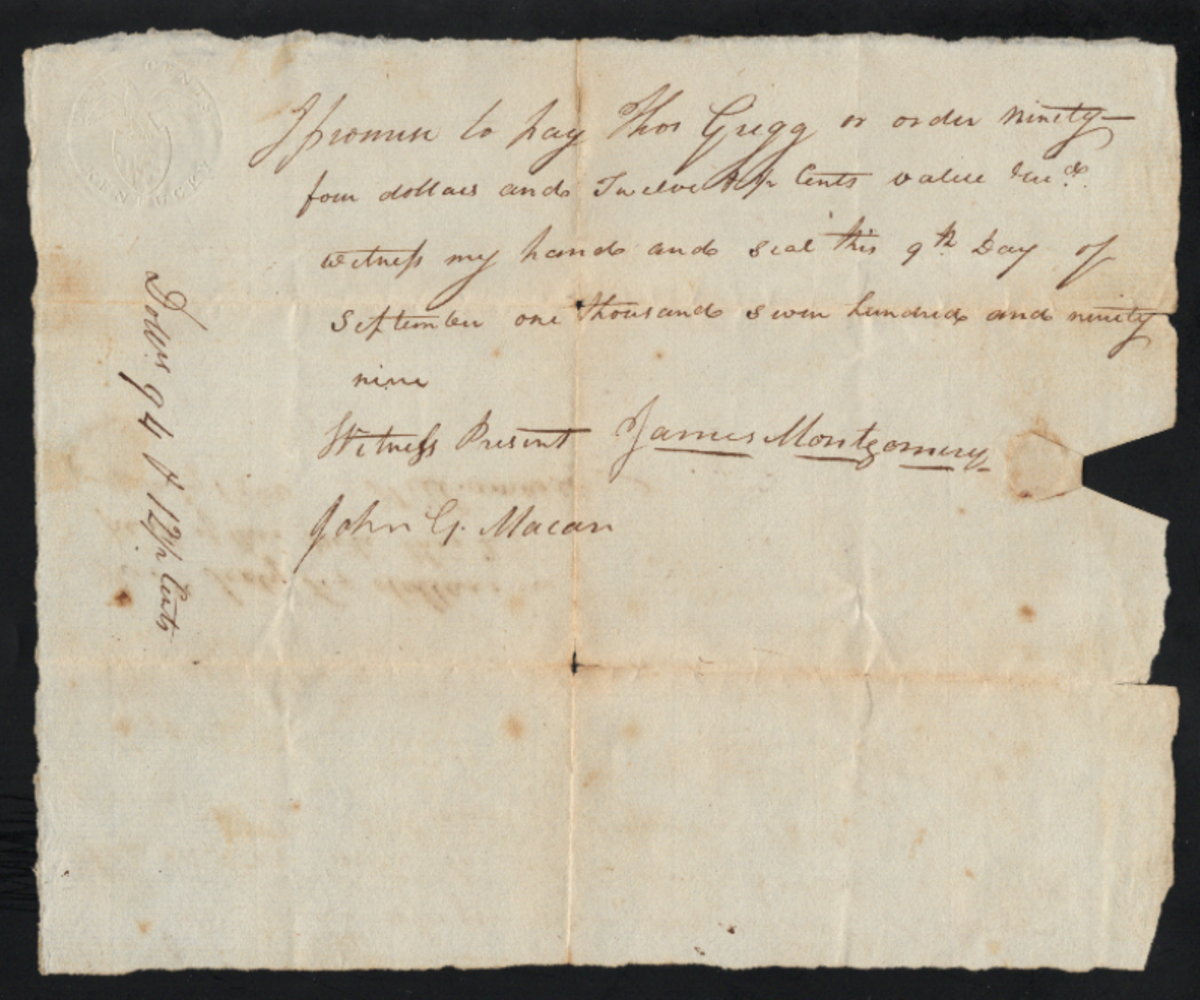 CENTS
KENTUCKY
I promise to pay Thos Gregg or order ninety-
four dollars and Twelve & ½ Cents value recd.
witness my hand and seal this 9th Day of
September one thousand seven hundred and ninety
nine
Witness Present James Montgomery
John G. Macan
Dollars 94 & 12½ Cents